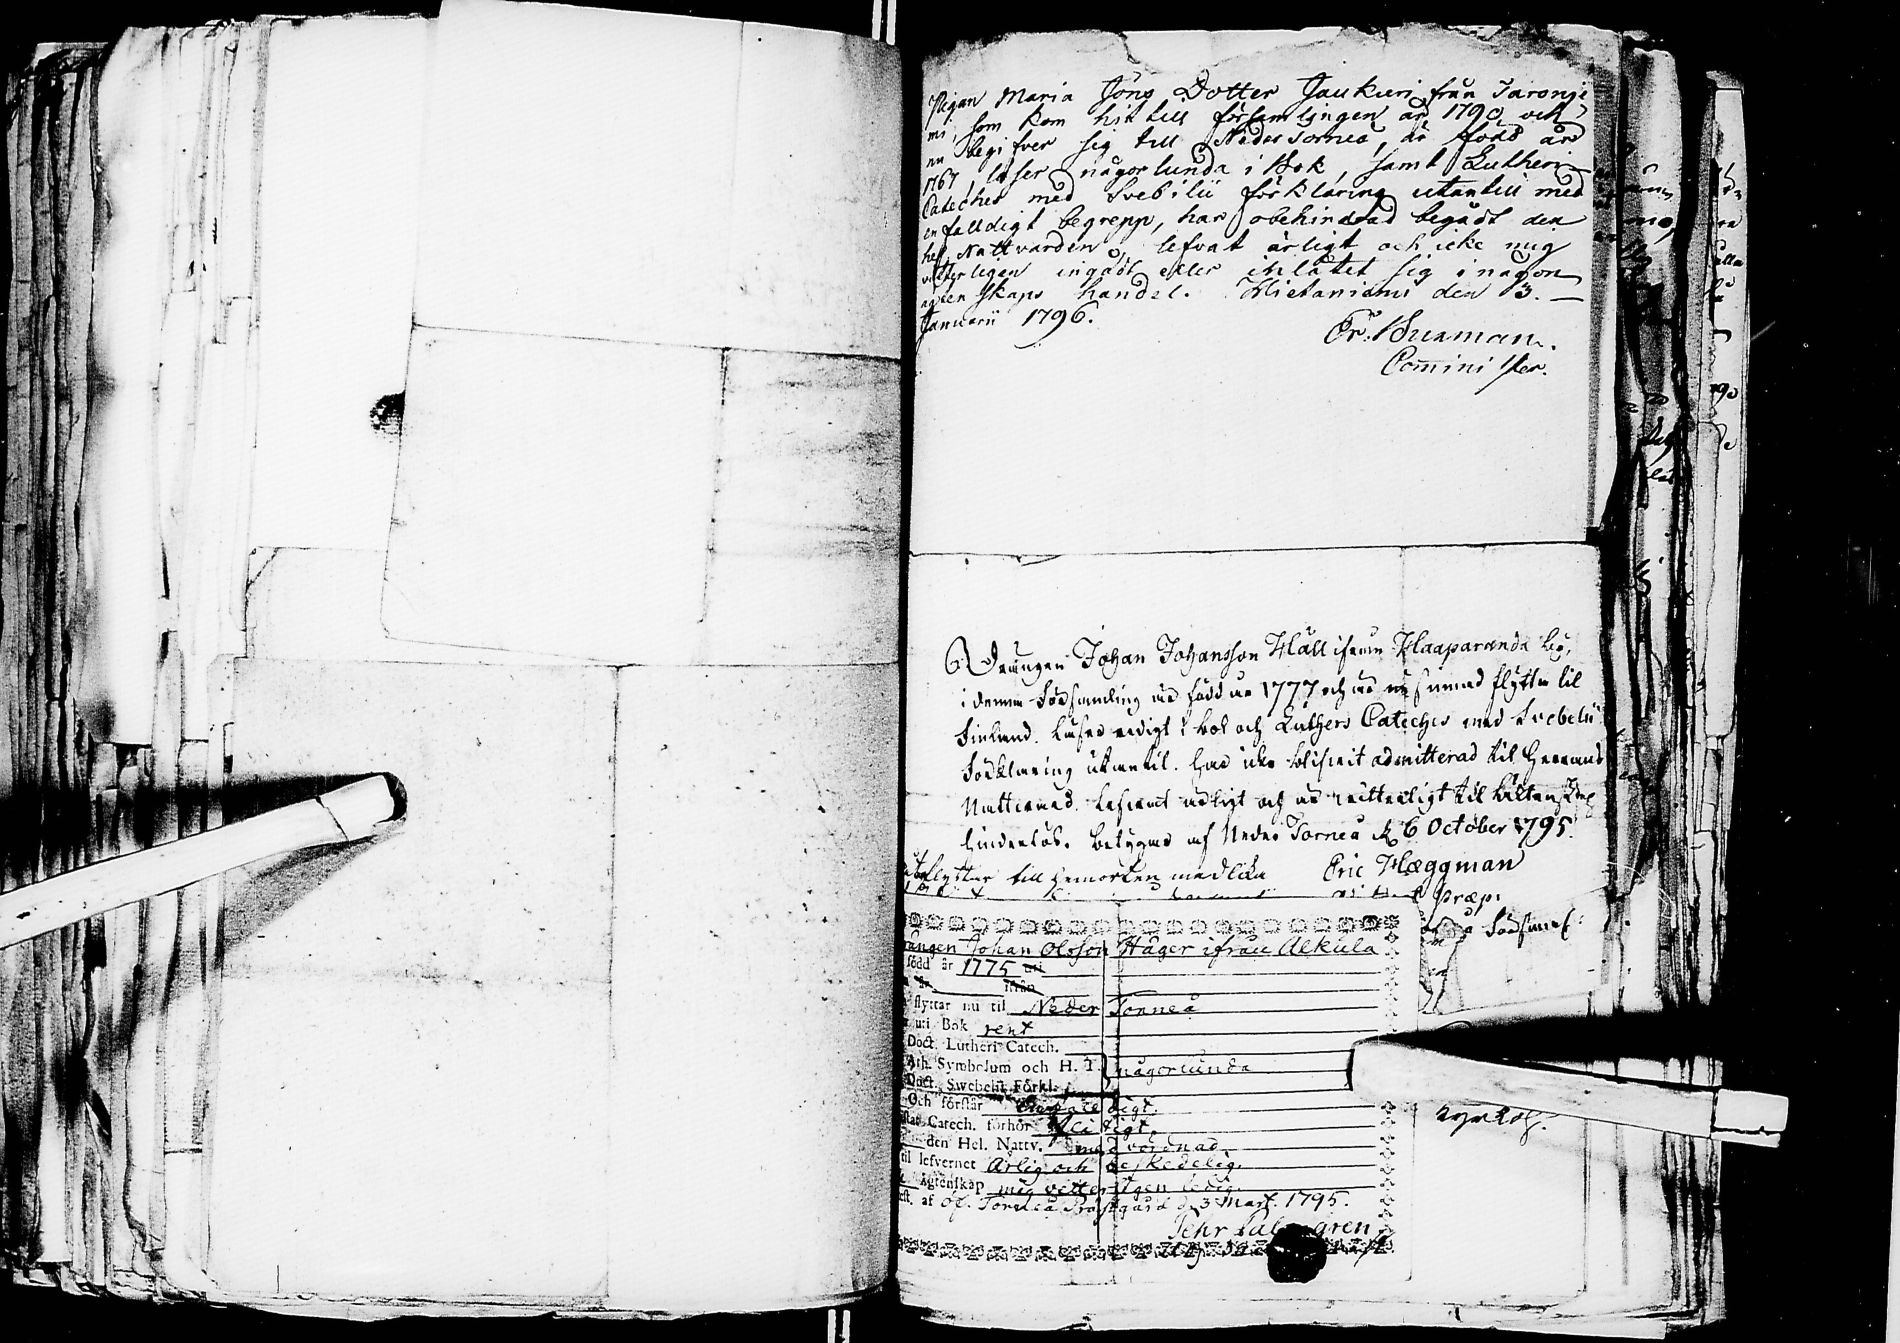 Pigan Maria Jöns Dotter Jaukuri från Jarongi
mi, som kom hit till församlingen år 1790, och
nu begifver sig till Neder Torneå, är född år
1767, läser någorlunda i Bok, samt Lutheri
Cateches med Svebilii förklaring utantill med
enfalldigt begrepp, har obehindrad begådt den
hel. Nattvarden, lefvat ärligt och icke mig
vetterligen ingådt eller inlåtet sig i någon
agten skaps handel. Hietaniemi den 3.
Januarii 1796.
Er. Burman.
Cominister.
Drängen Johan Johansson Häll ifrån Haaparanda by,
i denna Församling är född år 1777 och är nu sinnad flytta til
Finland. Läser redigt i bok och Luthers Cateches med Svebelii
Förklaring utantil. Har icke blifvit admitterad til Herrans
Nattvard. Lefvat ärligt och är vetterligt til äktenskap
hinderlös. Betygas af Neder Torneå d. 6 October 1795.
Eric Hæggman
flyttar till Hemorten med lika
Præp.
ungen Johan Olsson Häger ifrån Alkula
född år 1775 uti
år ifrån
flyttar nu til Neder Torneå
uti Bok rent
Doct. Lutheri Catech.
Ath. Symbolum och H. T. någorlunda
Doct. Swebelii Förkl.
Och förstår digt.
Catech. förhör flitigt,
den Hel. Nattv. med vördnad
til lefvernet Ärlig och beskedelig.
Ägtenskap mig vetterligen ledig.
af Öf. Torneå Prästgård d. 3 Mart. 1795.
Pehr